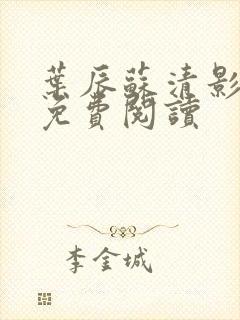 葉辰蘇清影
免費閱讀
李金城